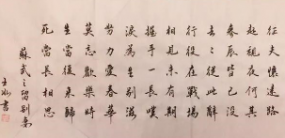 征夫懷遠路
起視夜何其
參辰皆已沒
去去從此辭
行役在戰場
相見未有期
握手一長嘆
淚為生別滋
努力愛春華
莫忘歡樂時
生當復來歸
死當長相思
蘇武之留別妻